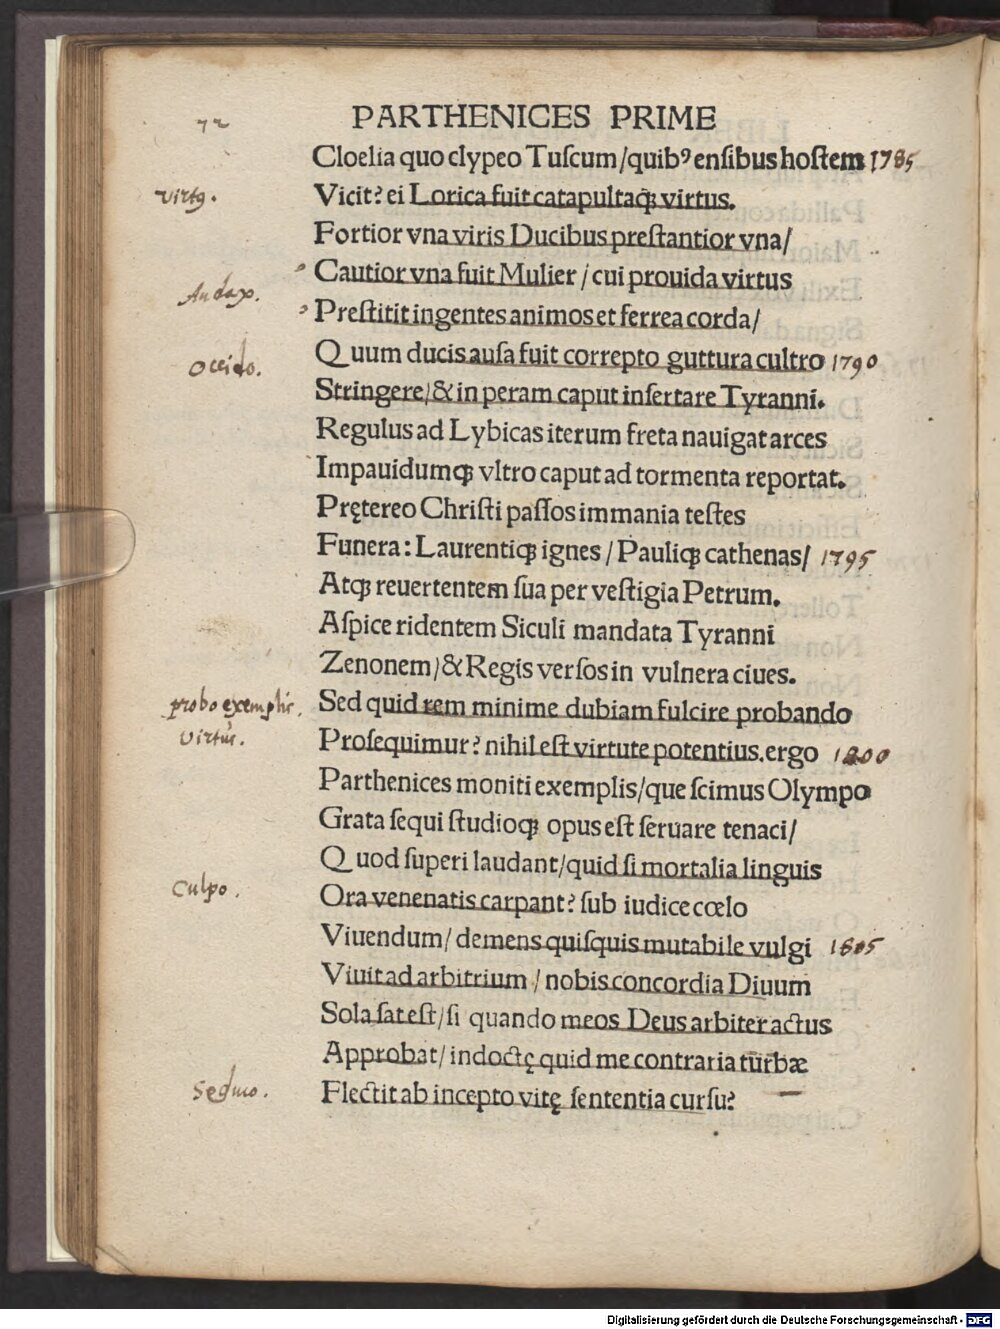 72
PARTHENICES PRIME
Cloelia quo clypeo Tuſcum/quibꝰ enſibus hoſtem 1785
virtꝰ. Vicit? ei Lorica fuit catapultaqꝫ virtus.
Fortior vna viris Ducibus preſtantior vna/
Audax. Cautior vna fuit Mulier / cui prouida virtus
Preſtitit ingentes animos et ferrea corda/
Occido. Quum ducis auſa fuit correpto guttura cultro 1790
Stringere/& in peram caput inſertare Tyranni.
Regulus ad Lybicas iterum freta nauigat arces
Impauidumqꝫ vltro caput ad tormenta reportat.
Prętereo Chriſti paſſos immania teſtes
Funera: Laurentiqꝫ ignes / Pauliqꝫ cathenas/ 1795
Atqꝫ reuertentem ſua per veſtigia Petrum.
Aſpice ridentem Siculi mandata Tyranni
Zenonem/& Regis verſos in vulnera ciues.
probo exemplis. Sed quid rem minime dubiam fulcire probando
virtus. Proſequimur? nihil eſt virtute potentius.ergo 1800
Parthenices moniti exemplis/que ſcimus Olympo
Grata ſequi ſtudioqꝫ opus eſt ſeruare tenaci/
Quod ſuperi laudant/quid ſi mortalia linguis
Culpo. Ora venenatis carpant? ſub iudice cœlo
Viuendum/ demens quiſquis mutabile vulgi 1805
Viuit ad arbitrium / nobis concordia Diuum
Sola ſat eſt/ſi quando meos Deus arbiter actus
Approbat/ indoctę quid me contraria turbæ
Seduco. Flectit ab incepto vitę ſententia curſu?
Digitalisierung gefördert durch die Deutsche Forschungsgemeinschaft - DFG